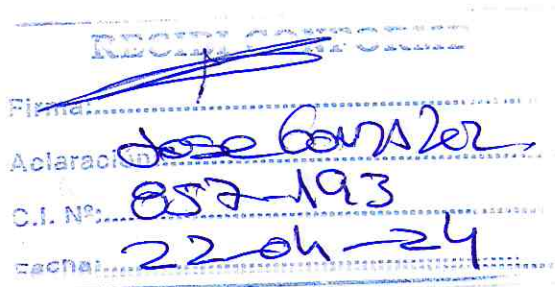 RECIBI CONFORME
Firma:
Aclaración: Jose Gonzalez
C.I. Nº: 857-193
Fecha: 22-04-24